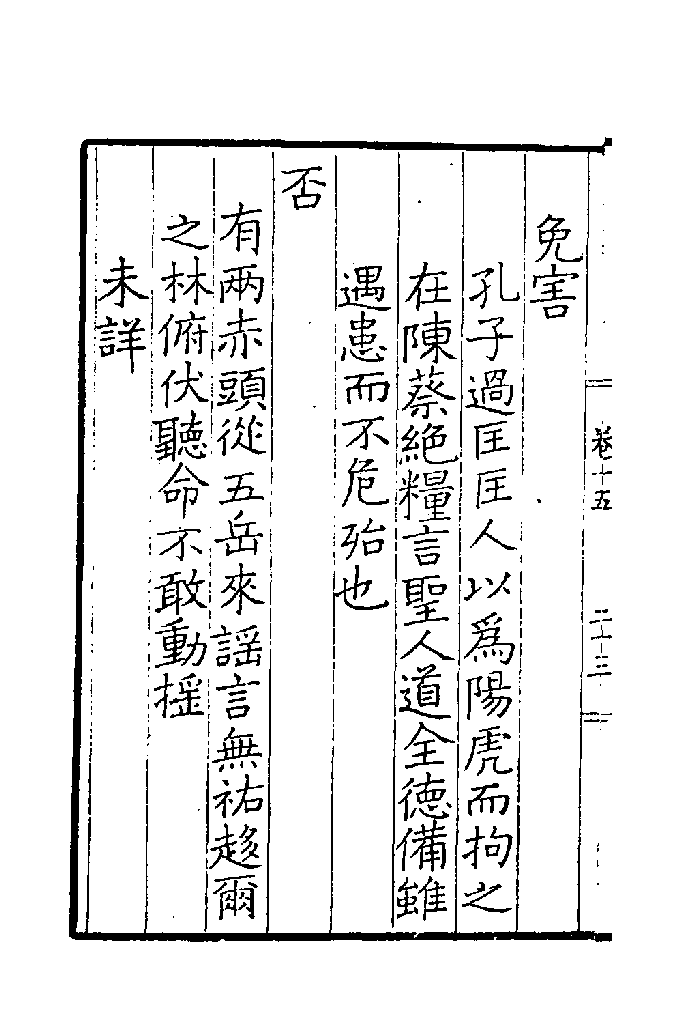 卷十五
二十三
免害
孔子過匡匡人以為陽虎而拘之
在陳蔡絕糧言聖人道全德備雖
遇患而不危殆也
否
有兩赤頭從五岳來謡言無祐趍爾
之林俯伏聽命不敢動揺
未詳